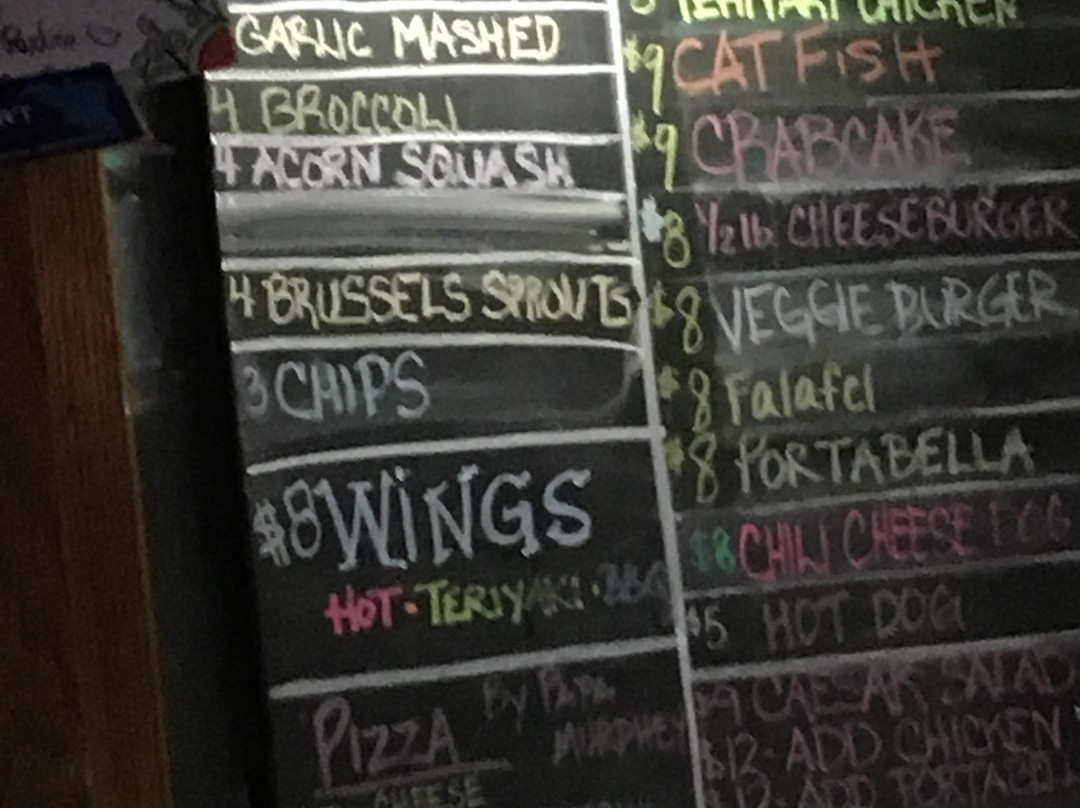 GARLIC MASHED
4 BROCCOLI
4 ACORN SQUASH
4 BRUSSELS SPROUTS
3 CHIPS
$8 WiNGS
HOT · TERIYAKI · BBQ
PiZZA By PAPA
MURPHEY
CHEESE
TERIYAKI CHICKEN
$9 CAT FiSH
$9 CRABCAKE
$8 1/2 lb CHEESEBURGER
$8 VEGGIE BURGER
$8 Falafel
$8 PORTABELLA
$8 CHILI CHEESE DOG
$5 HOT DOG
$9 CAESAR SALAD
$13 · ADD CHICKEN
ADD